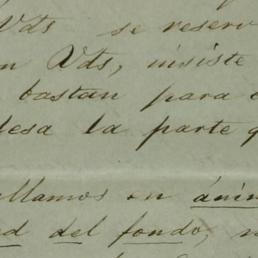 Vds se reserv
n Vds, insiste
bastan para
esa la parte q
llamos en ánim
ad del fondo,